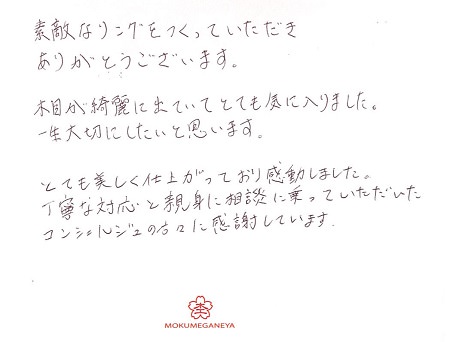 素敵なリングをつくっていただき
ありがとうございます。
木目が綺麗に出ていてとても気に入りました。
一生大切にしたいと思います。
とても美しく仕上がっており感動しました。
丁寧な対応と親身に相談に乗っていただいた
コンシェルジュの方々に感謝しています。
MOKUMEGANEYA